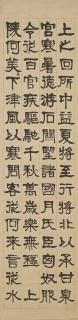 上之回所中益夏將至行將北以承甘泉
宮寒暑德游石關望諸國月氏臣匈奴服
令從百官疾驅馳千秋萬歲樂無極 上
陵何美下津風以寒問客從何來言從水